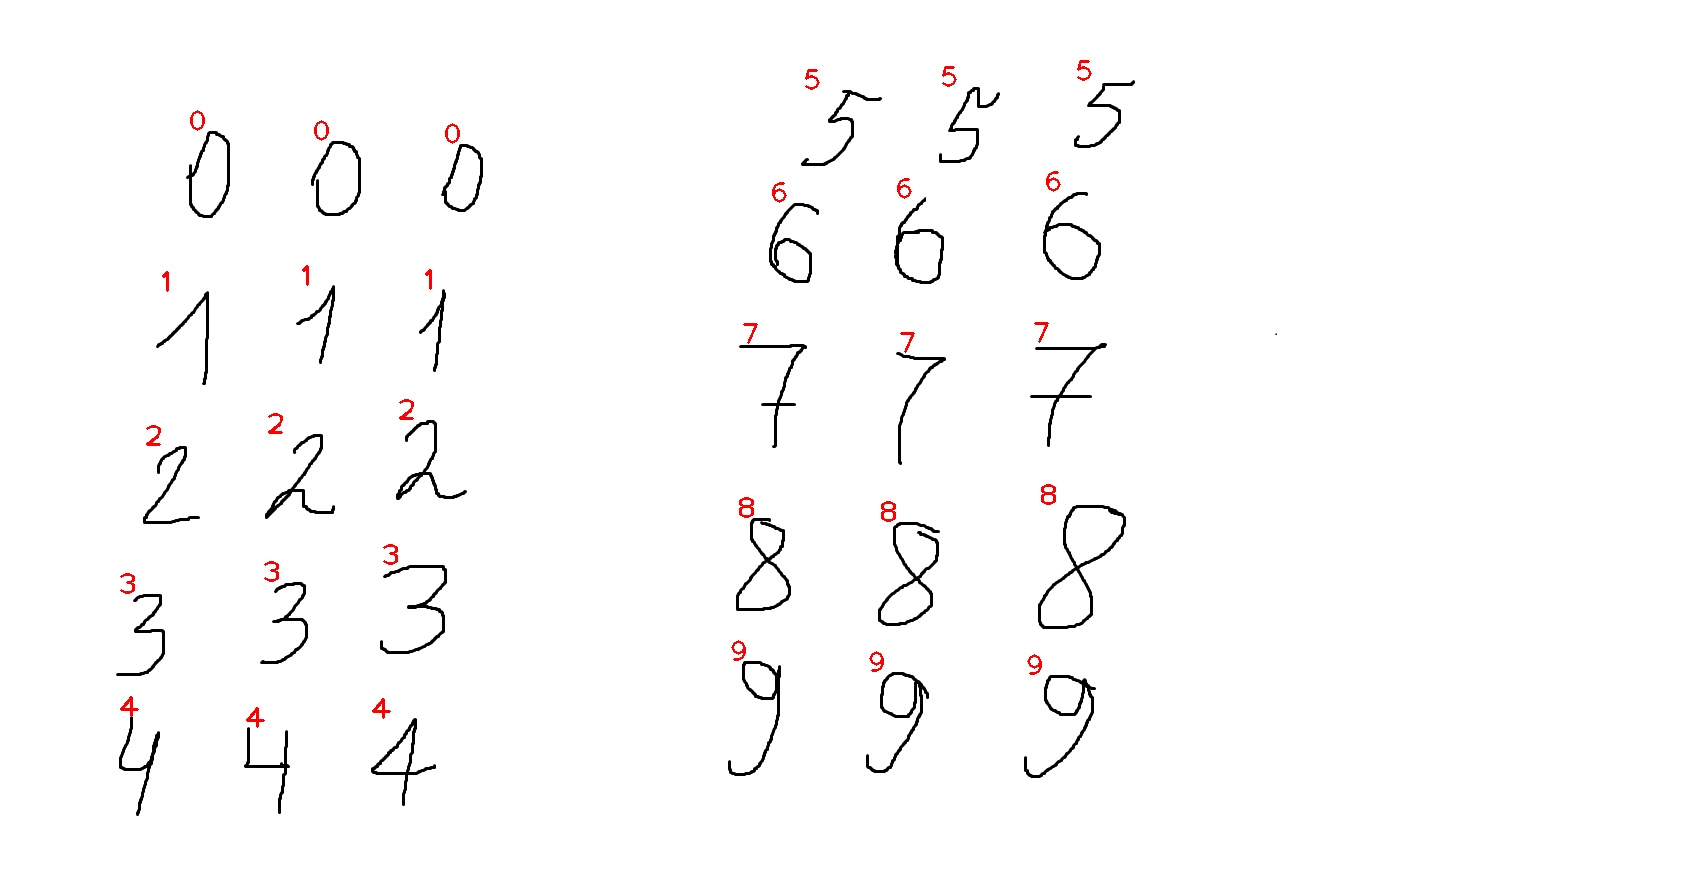 0 0 0
0 0 0
1 1 1
1 1 1
2 2 2
2 2 2
3 3 3
3 3 3
4 4 4
4 4 4
5 5 5
5 5 5
6 6 6
6 6 6
7 7 7
7 7 7
8 8 8
8 8 8
9 9 9
9 9 9